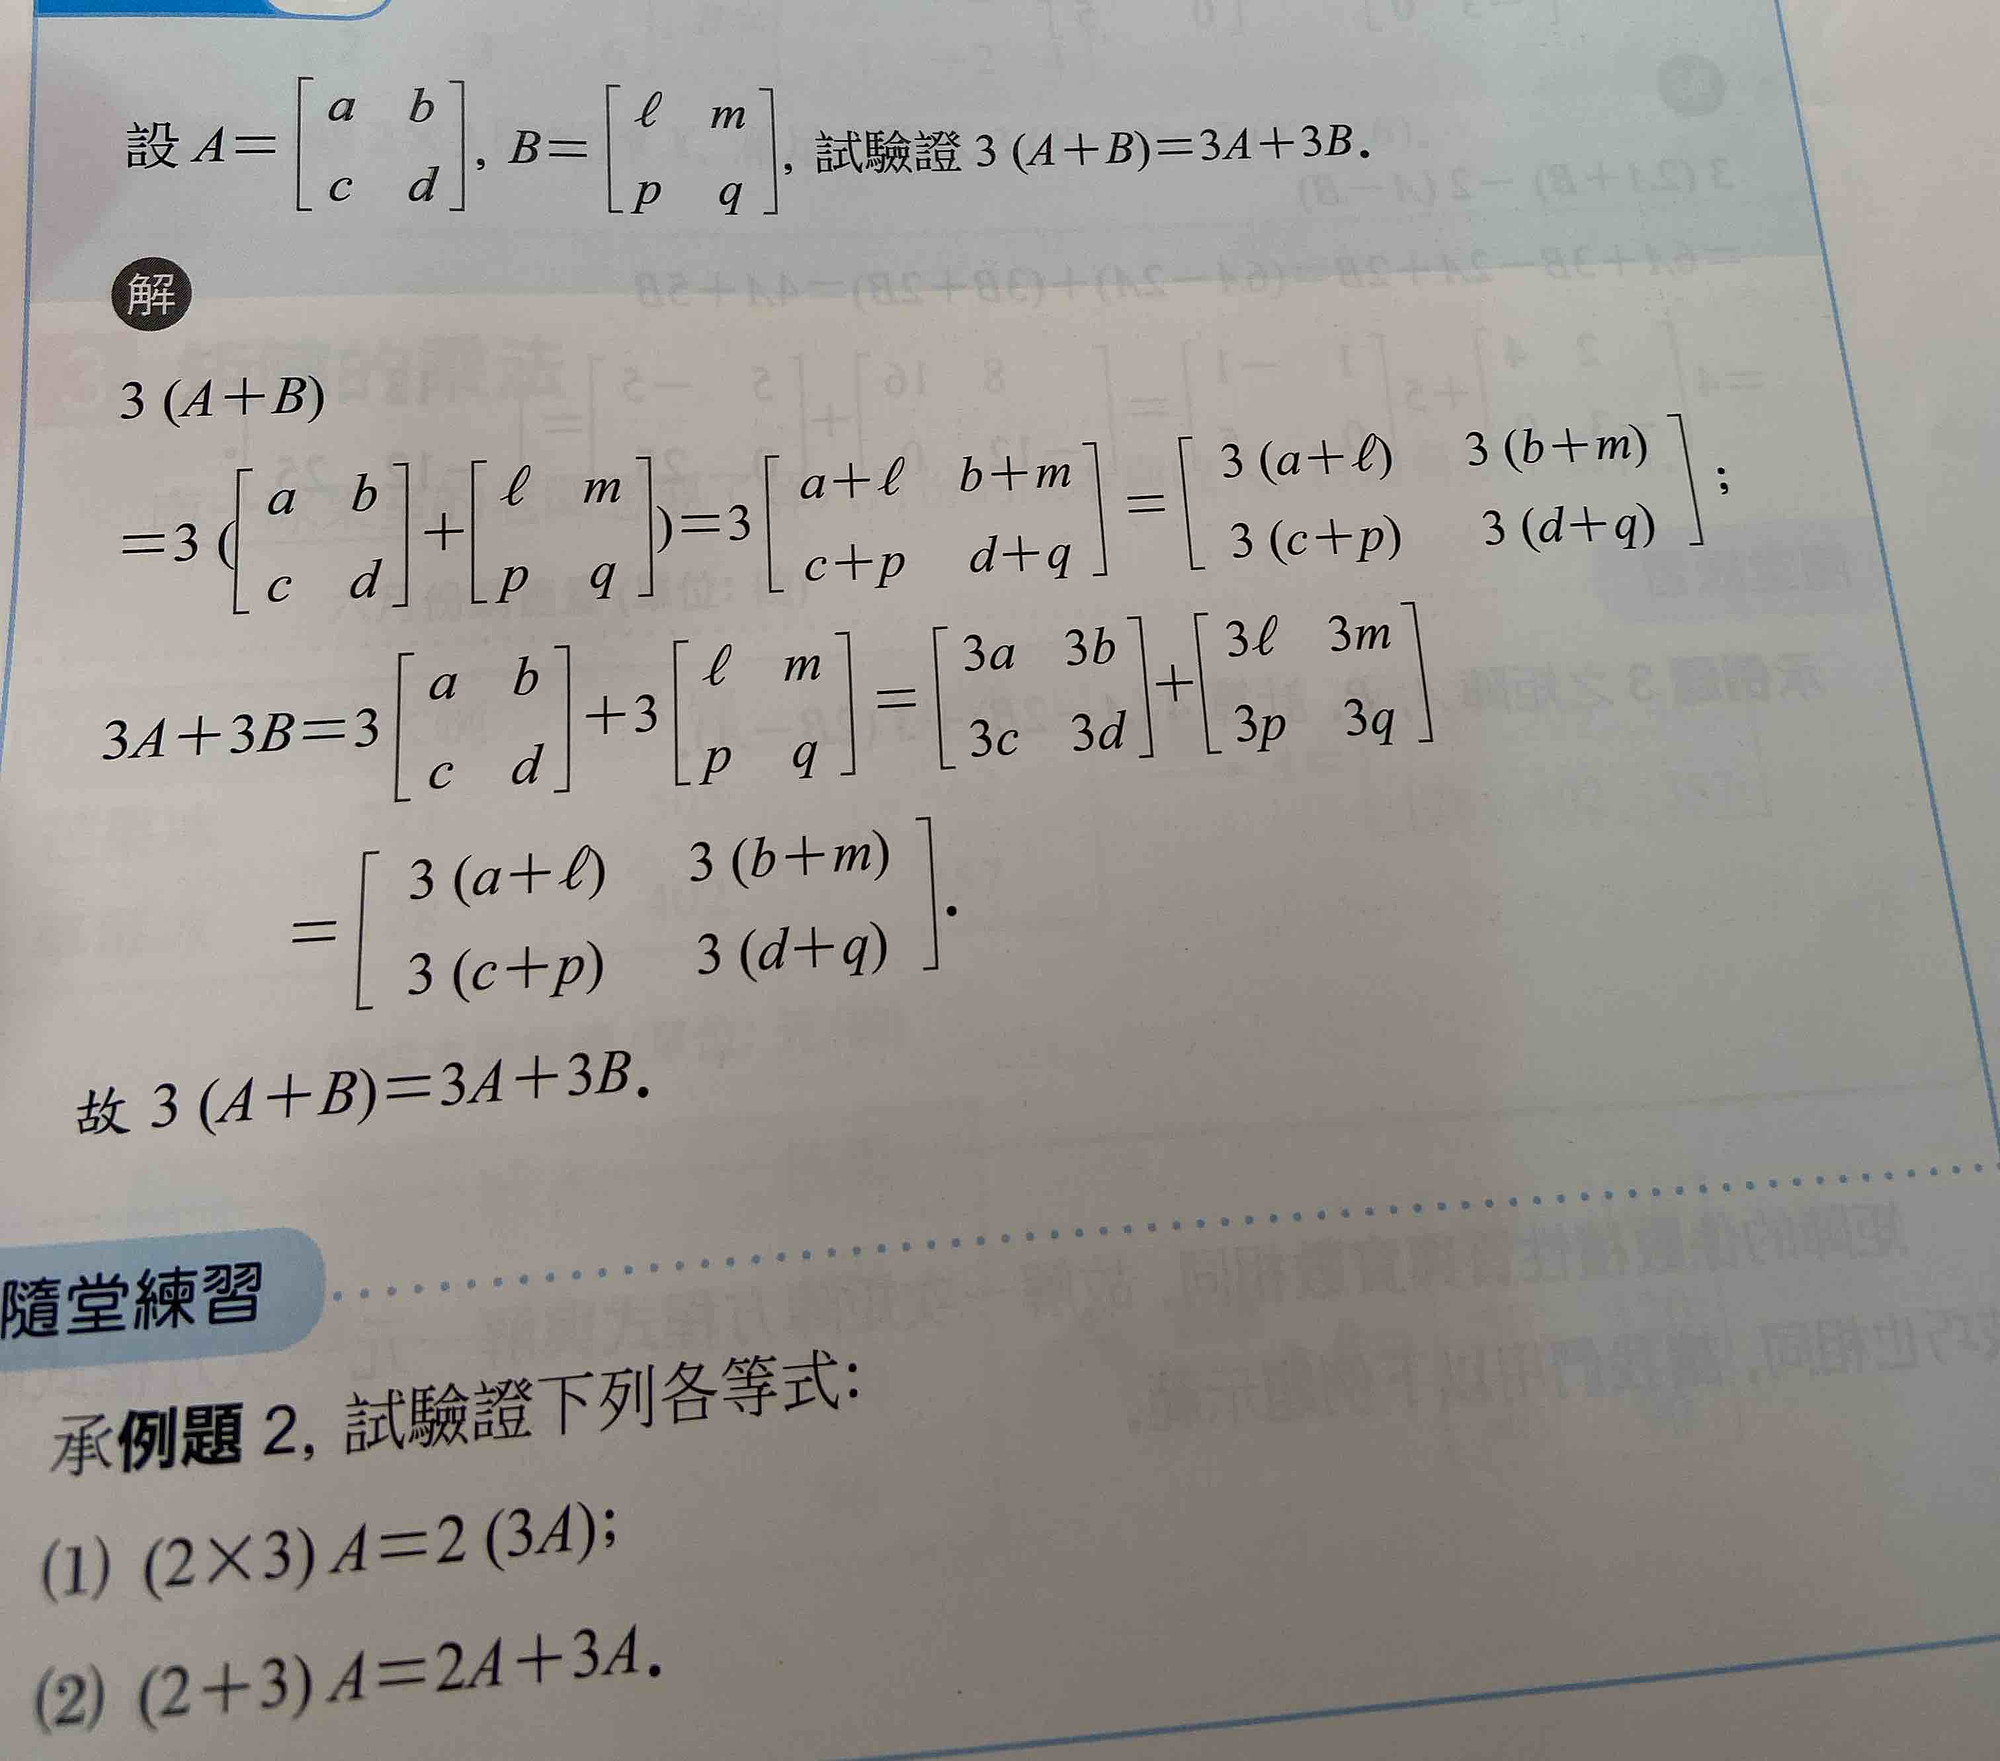 設 A=[a b; c d], B=[ℓ m; p q], 試驗證 3 (A+B)=3A+3B.
解
3 (A+B)
=3 ([a b; c d]+[ℓ m; p q])=3[a+ℓ b+m; c+p d+q]=[3 (a+ℓ) 3 (b+m); 3 (c+p) 3 (d+q)];
3A+3B=3[a b; c d]+3[ℓ m; p q]=[3a 3b; 3c 3d]+[3ℓ 3m; 3p 3q]
=[3 (a+ℓ) 3 (b+m); 3 (c+p) 3 (d+q)].
故 3 (A+B)=3A+3B.
隨堂練習
承例題 2, 試驗證下列各等式:
(1) (2×3) A=2 (3A);
(2) (2+3) A=2A+3A.